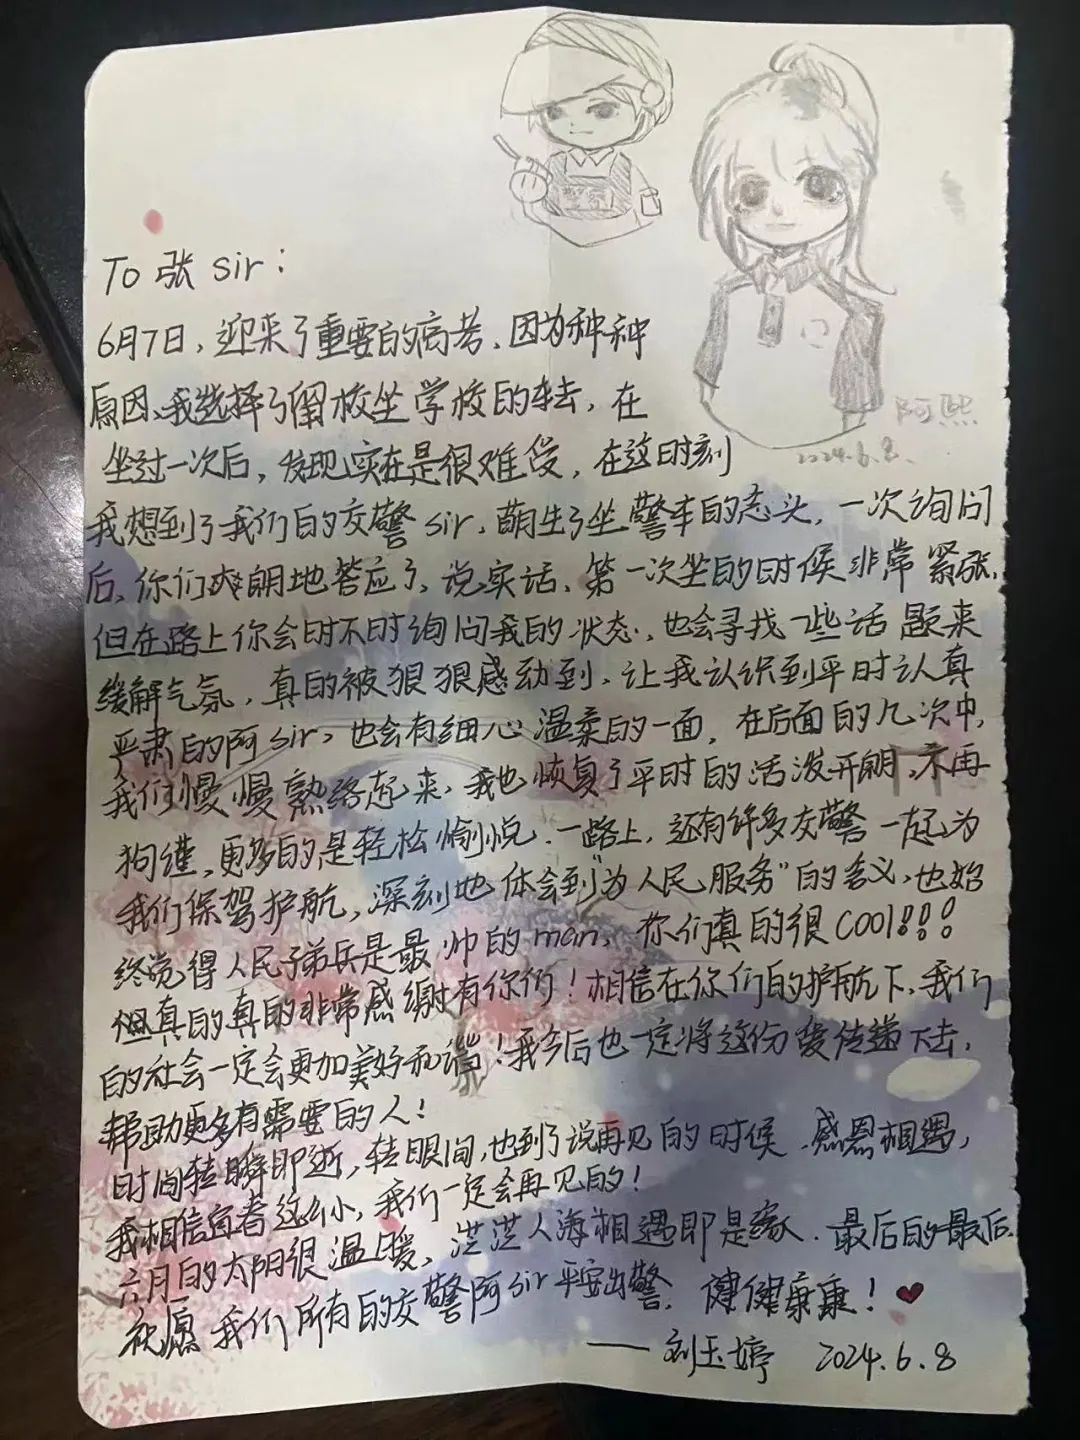 阿熙
2024.6.8.
To 张 sir：
6月7日，迎来了重要的高考，因为种种
原因，我选择了留校坐学校的车去，在
坐过一次后，发现实在是很难受，在这时刻
我想到了我们的交警 sir，萌生了坐警车的念头，一次询问
后，你们爽朗地答应了，说实话，第一次坐的时候非常紧张，
但在路上你会时不时询问我的状态，也会寻找一些话题来
缓解气氛，真的被狠狠感动到，让我认识到平时认真
严肃的阿sir，也会有细心温柔的一面，在后面的几次中，
我们慢慢熟络起来，我也恢复了平时的活泼开朗，不再
拘谨，更多的是轻松愉悦．一路上，还有许多交警一起为
我们保驾护航，深刻地体会到“为人民服务”的含义，也始
终觉得人民子弟兵是最帅的man，你们真的很cool!!!
真的真的非常感谢有你们！相信在你们的护航下，我们
的社会一定会更加美好和谐！我今后也一定将这份爱传递下去，
帮助更多有需要的人！
时间转瞬即逝，转眼间，也到了说再见的时候．感恩相遇，
我相信宜春这么小，我们一定会再见的！
六月的太阳很温暖，茫茫人海相遇即是缘．最后的最后，
祝愿我们所有的交警阿sir平安出警，健健康康！
——刘玉婷 2024.6.8